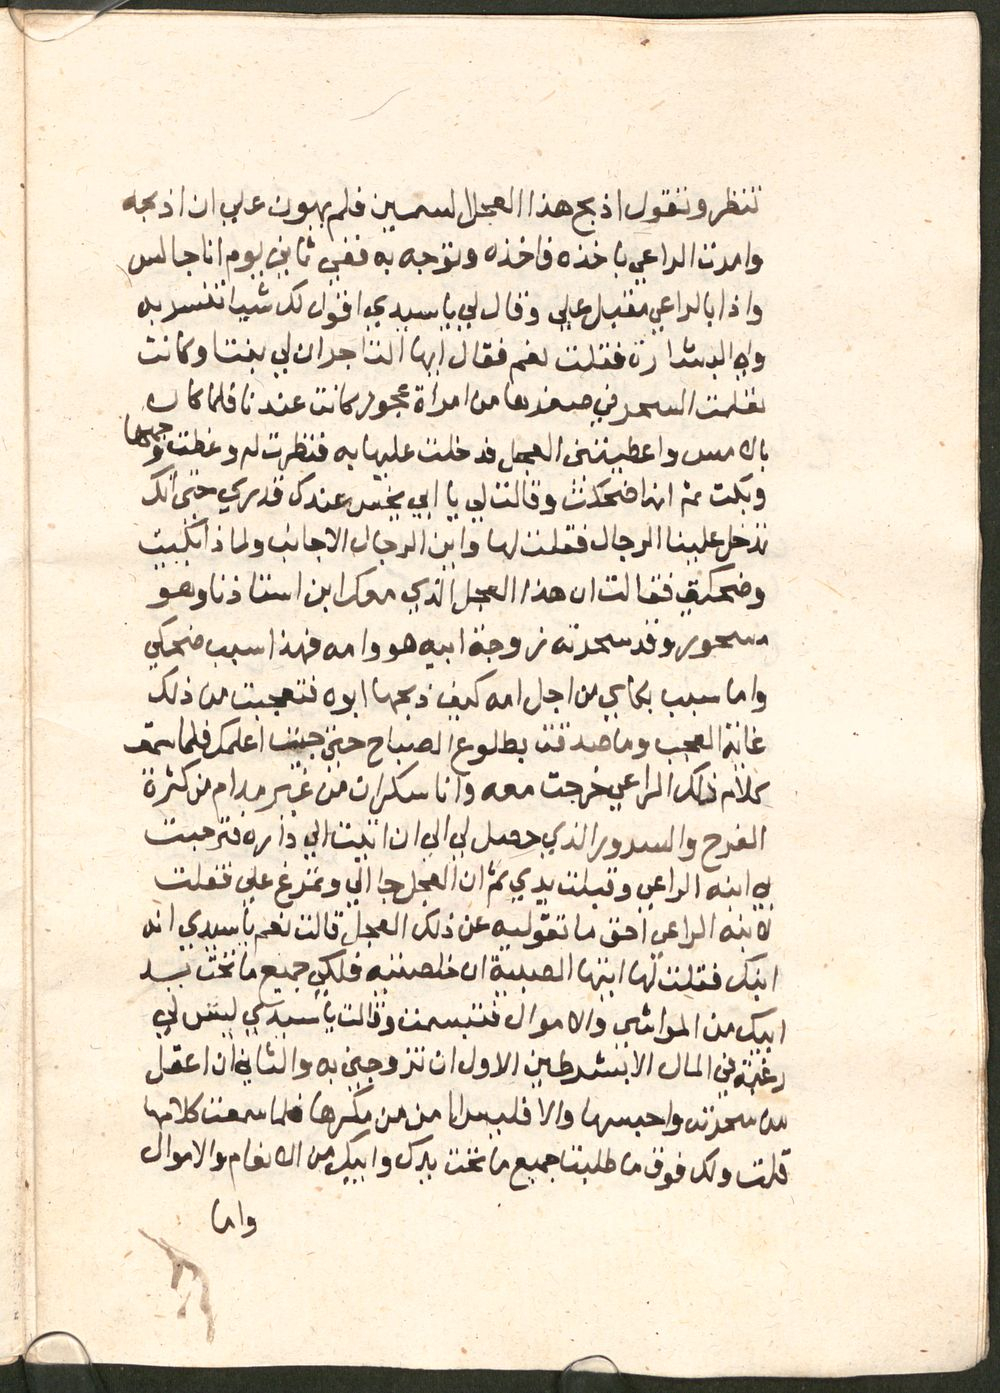 تنظر وتقول اذبح هذا العجل السمين فلم يهون علي ان اذبحه
وامرت الراعي ياخذه فاخذه وتوجه به ففي ثاني يوم انا جالس
واذا بالراعي مقبل علي وقال لي يا سيدي اقول لك شيا تنسر به
ولي البشارة فقلت نعم فقال ايها التاجر ان لي بنتا وكانت
تعلمت السحر في صغرها من امراة عجوز كانت عندنا فلما كان
بالامس واعطيتني العجل فدخلت عليها به فنظرت له وغطت وجهها
وبكت ثم انها ضحكت وقالت لي يا ابي يخس عندك قدري حتى انك
تدخل علينا الرجال فقلت لها واين الرجال الاجانب ولماذا بكيت
وضحكتي فقالت ان هذا العجل الذي معك ابن استاذنا وهو
مسحور وقد سحرته زوجة ابيه هو وامه فهذا سبب ضحكي
واما سبب بكاي من اجل امه كيف ذبحها ابوه فتعجبت من ذلك
غاية العجب وما صدقت بطلوع الصباح حتى جيت اعلمك فلما سمعت
كلام ذلك الراعي خرجت معه وانا سكران من غير مدام من كثرة
الفرح والسرور الذي حصل لي الى ان اتيت الي داره فترحبت
بي ابنة الراعي وقبلت يدي ثم ان العجل جا الي وتمرغ علي فقلت
لابنة الراعي احق ما تقوليه عن ذلك العجل قالت نعم يا سيدي انه
ابنك فقلت لها ايتها الصبية ان خلصتيه فلكي جميع ما تحت يد
ابيك من المواشي والاموال فتبسمت وقالت يا سيدي ليس لي
رغبة في المال الا بشرطين الاول ان تزوجني به والثاني ان اعقل
من سحرته واحبسها والا فليس انا من من مكرها فلما سمعت كلامها
قلت ولك فوق ما طلبت جميع ما تحت يدك وابيك من الانعام والاموال
واما